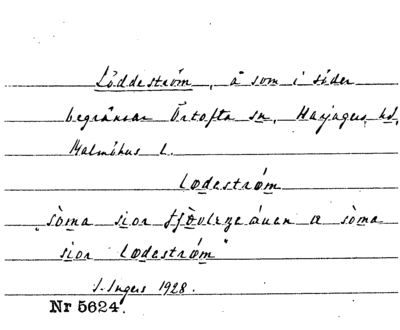 Löddeström, å som i söder
begränsar Örtofta sn, Harjagers hd,
Malmöhus l.
lødeström
"sòma sior
sior lødeström"
S. Ingers 1928.
Nr 5624.